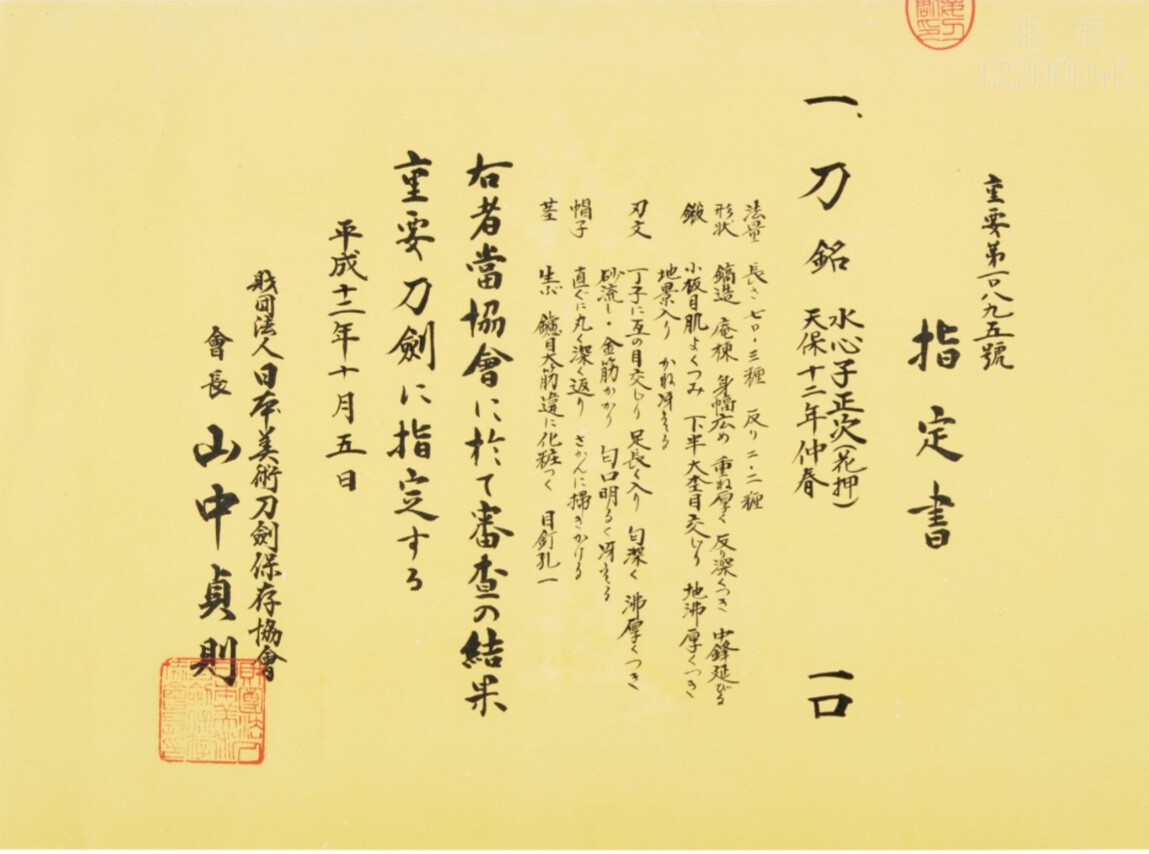 重要第一〇八九五號
指定書
一、刀 銘 水心子正次(花押) 一口
天保十二年仲春
法量 長さ 七〇・三糎 反り 二・二糎
形状 鎬造 庵棟 身幅広め 重ね厚く 反り深くつき 中鋒延びる
鍛 小板目肌よくつみ 下半大杢目交じり 地沸厚くつき
地景入り かね冴える
刃文 丁子に互の目交じり 足長く入り 匂深く 沸厚くつき
砂流し・金筋かかり 匂口明るく冴える
帽子 直ぐに丸く深く返り さかんに掃きかける
茎 生ぶ 鑢目大筋違に化粧つく 目釘孔一
右者當協會に於て審査の結果
重要刀劍に指定する
平成十二年十月五日
財団法人日本美術刀劍保存協會
會長 山中貞則